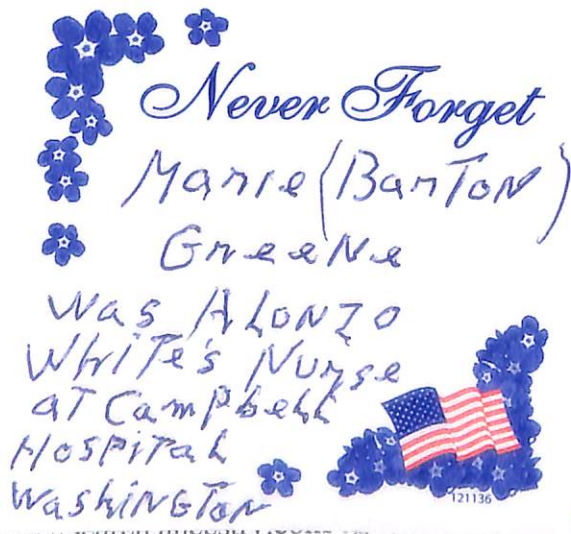 Never Forget
Marie (Barton)
Greene
Was Alonzo
White's Nurse
at Campbell
Hospital
Washington
121136